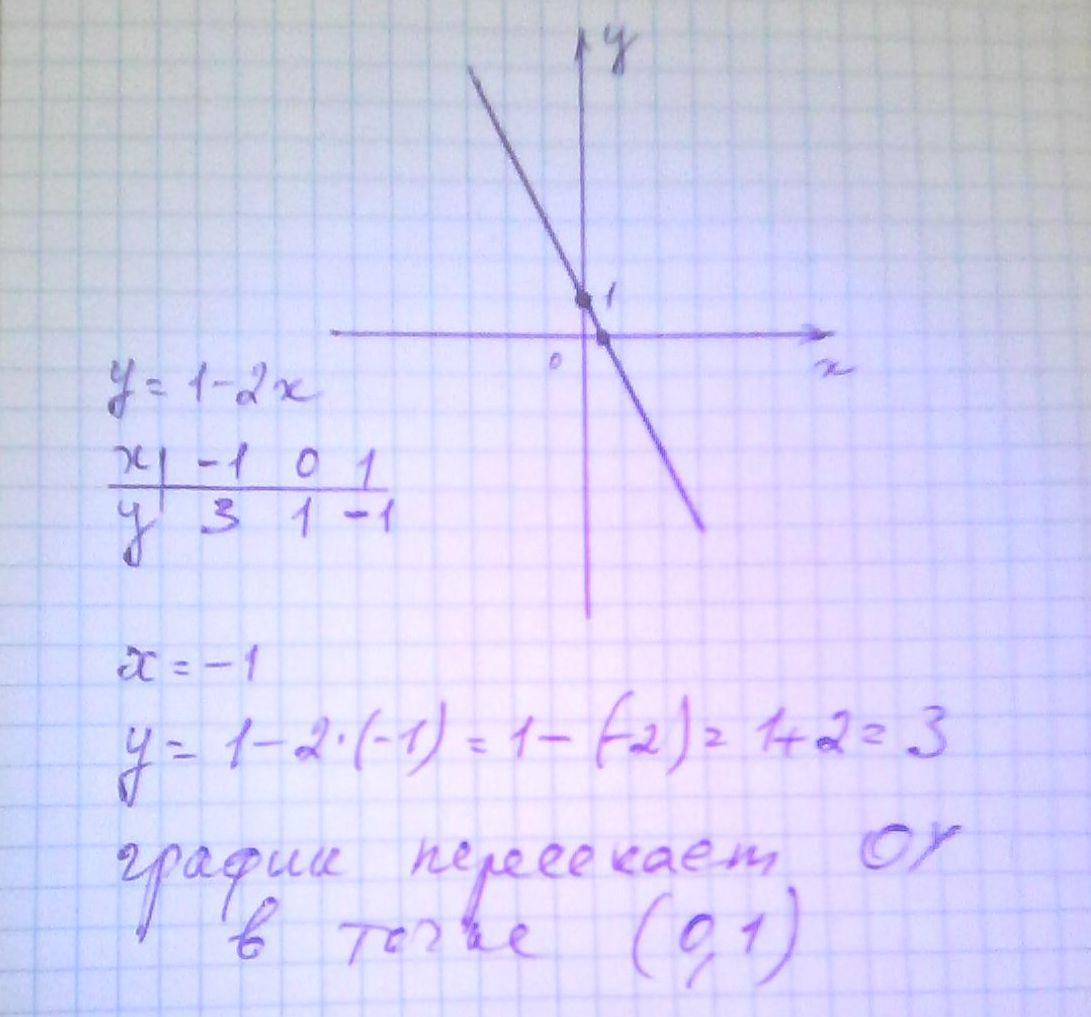 y
1
0
x
y = 1 - 2x
x | -1 0 1
y | 3 1 -1
x = -1
y = 1 - 2·(-1) = 1 - (-2) = 1 + 2 = 3
график пересекает OY
в точке (0,1)